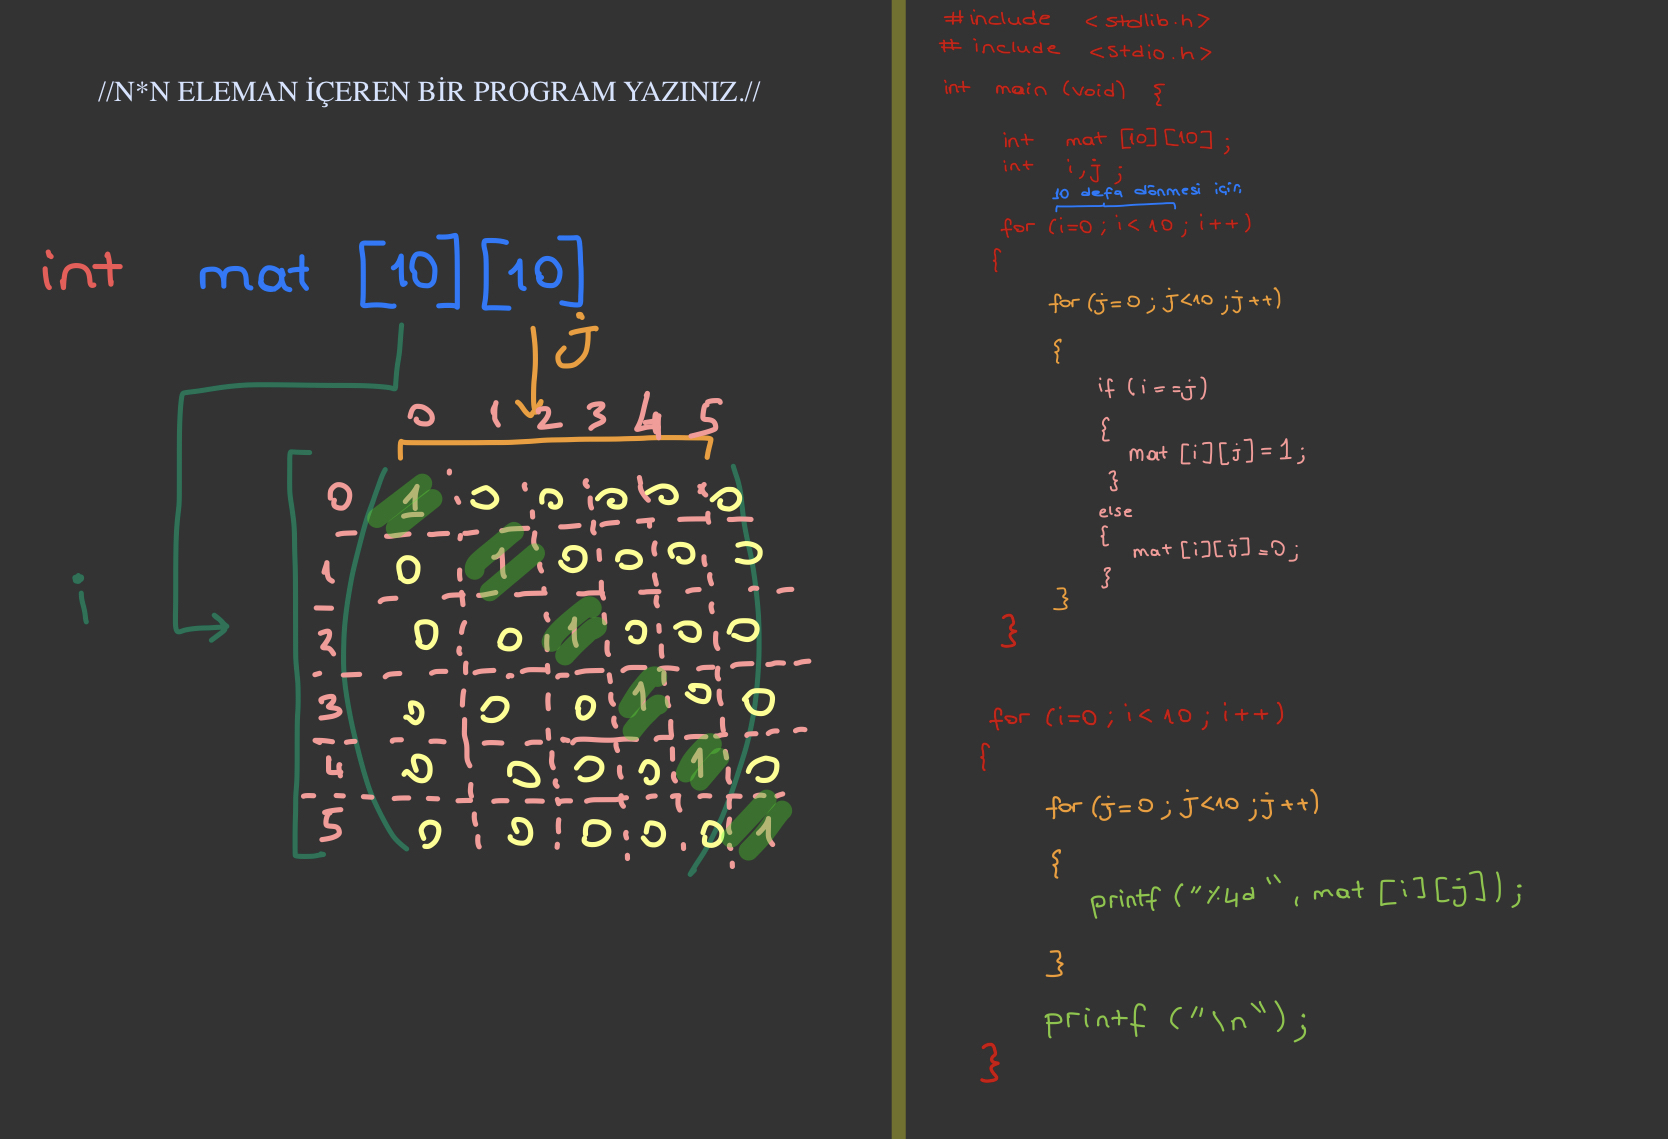 //N*N ELEMAN İÇEREN BİR PROGRAM YAZINIZ.//
int mat [10][10]
j
0 1 2 3 4 5
0 1 0 0 0 0 0
1 0 1 0 0 0 0
i
2 0 0 1 0 0 0
3 0 0 0 1 0 0
4 0 0 0 0 1 0
5 0 0 0 0 0 1
#include <stdlib.h>
#include <stdio.h>
int main (void) {
int mat [10][10];
int i,j;
10 defa dönmesi için
for (i=0; i<10; i++)
{
for (j=0; j<10; j++)
{
if (i==j)
{
mat [i][j]=1;
}
else
{
mat [i][j]=0;
}
}
}
for (i=0; i<10; i++)
{
for (j=0; j<10; j++)
{
printf ("%4d", mat [i][j]);
}
printf ("\n");
}